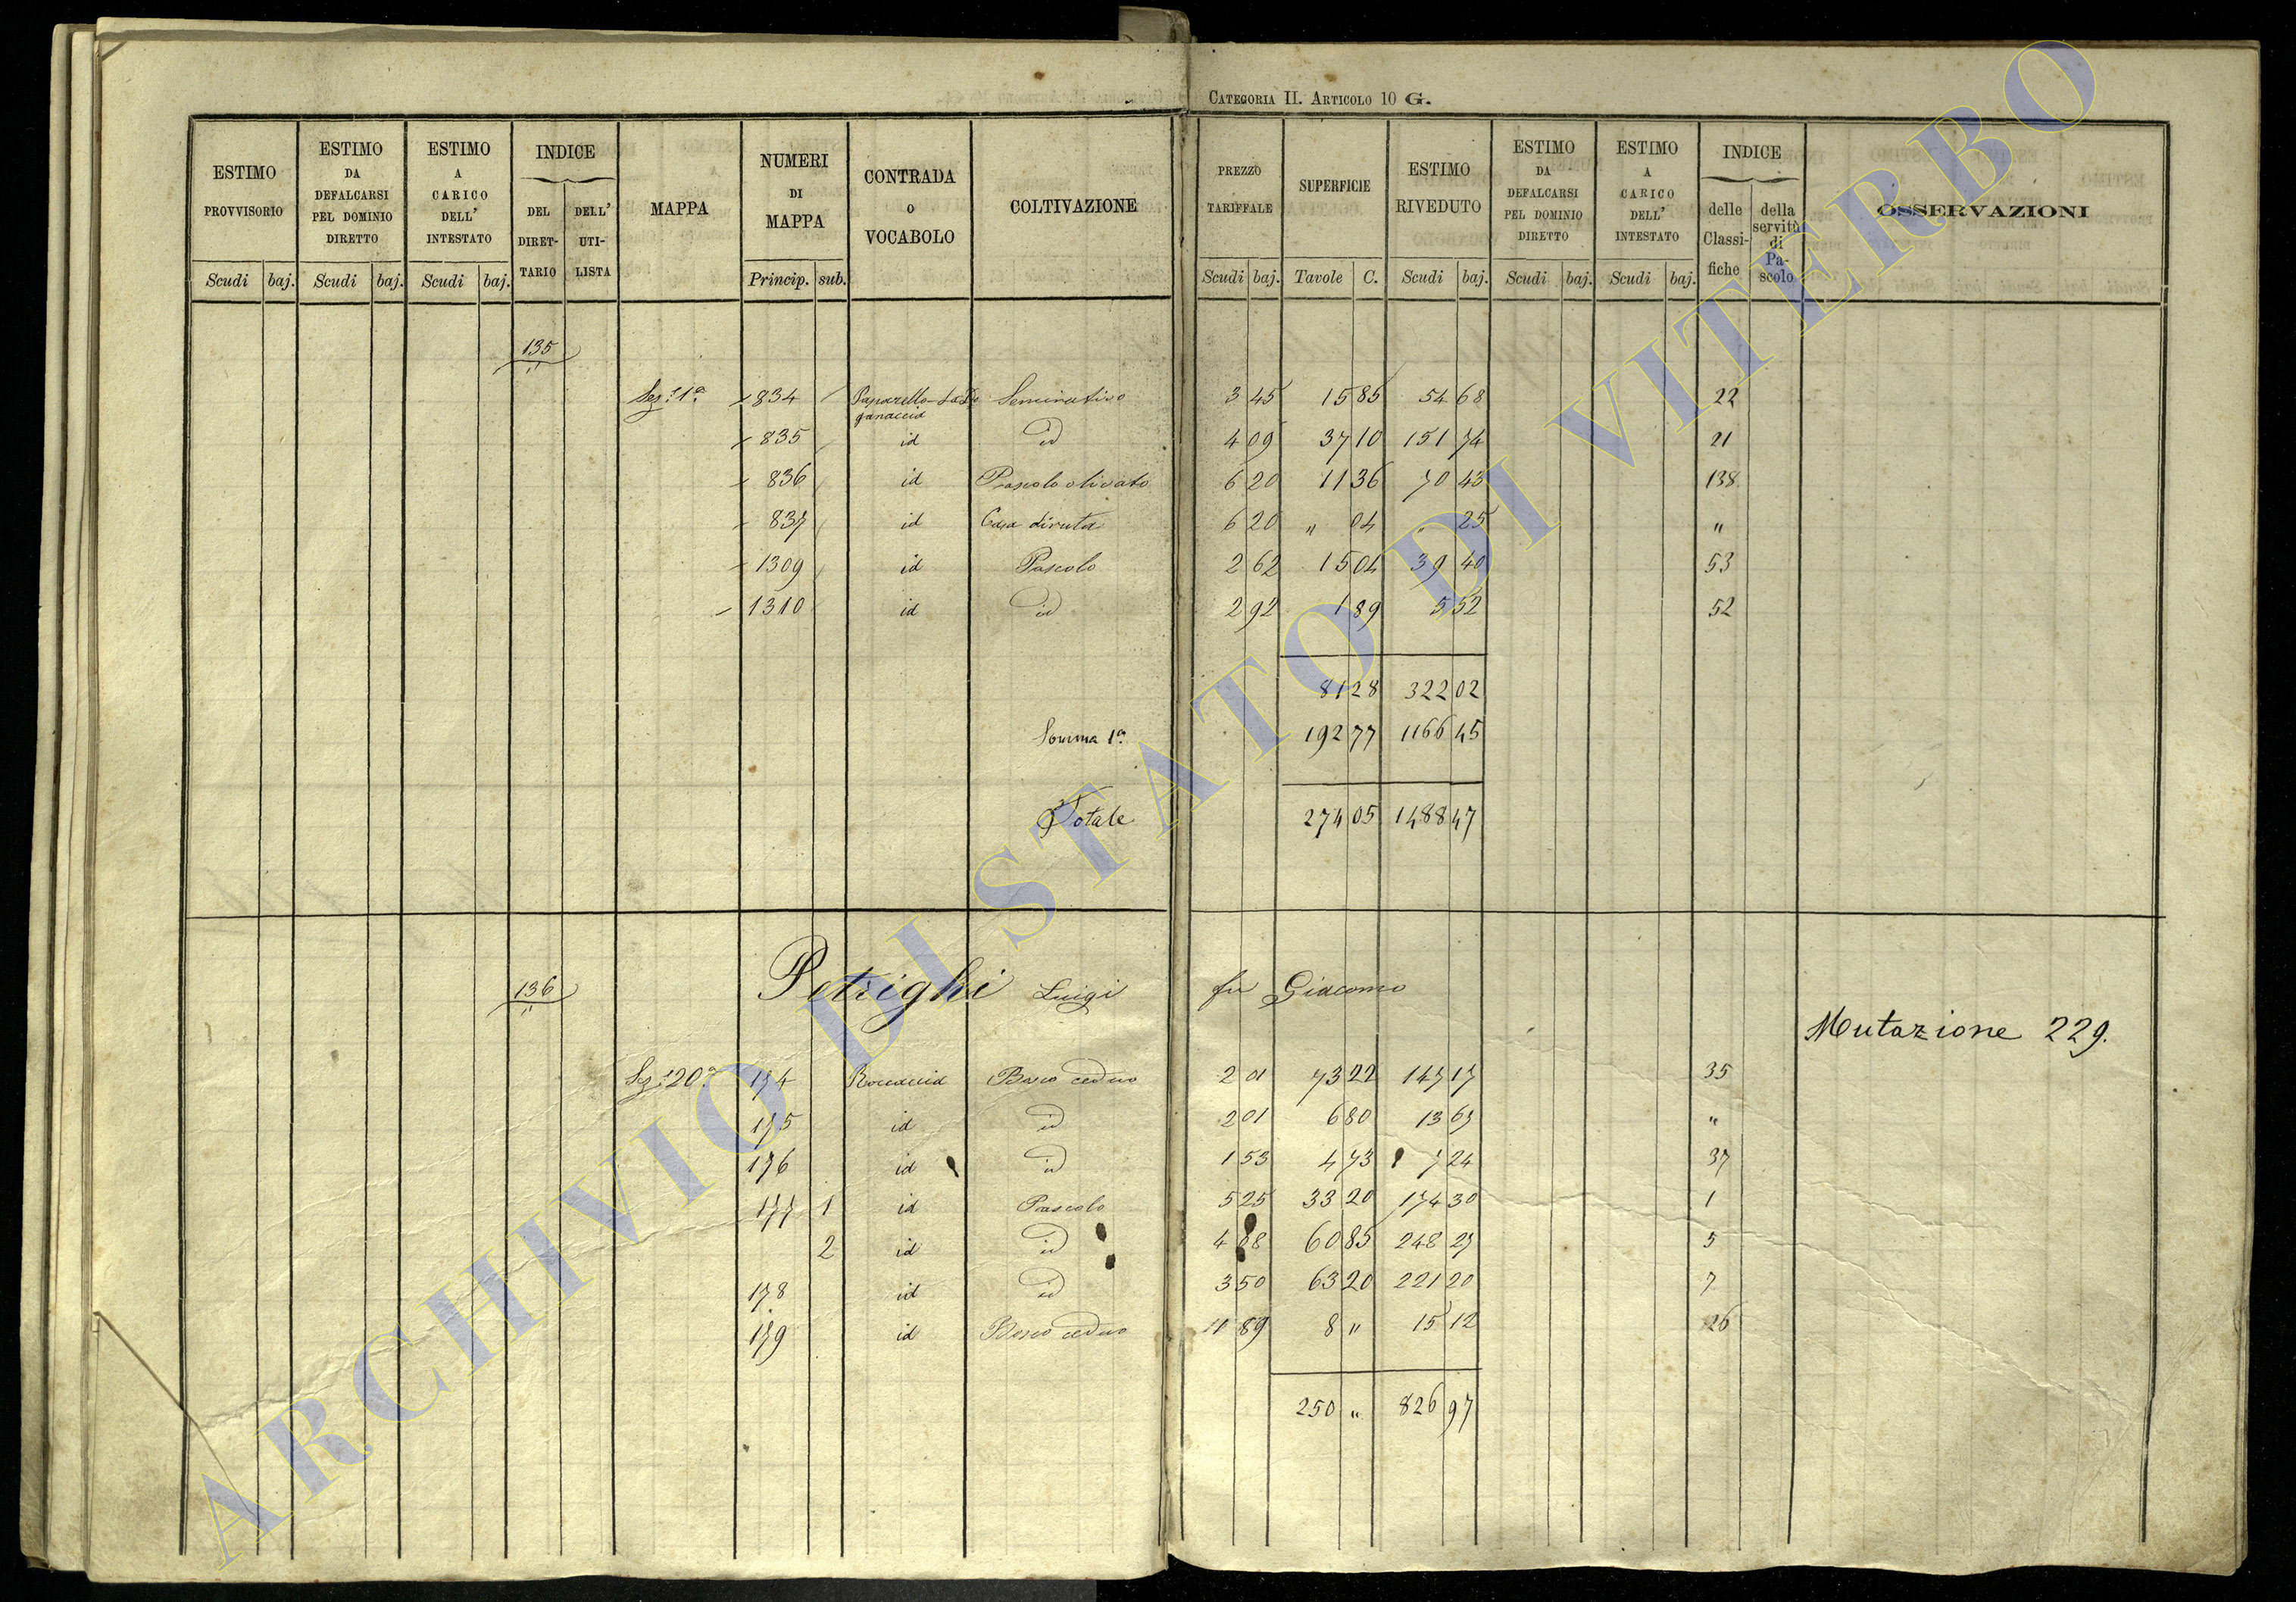 CATEGORIA II. ARTICOLO 10 G.
ESTIMO PROVVISORIO Scudi baj.
ESTIMO DA DEFALCARSI PEL DOMINIO DIRETTO Scudi baj.
ESTIMO A CARICO DELL' INTESTATO Scudi baj.
INDICE DEL DIRET-TARIO DELL' UTI-LISTA
MAPPA
NUMERI DI MAPPA Princip. sub.
CONTRADA O VOCABOLO
COLTIVAZIONE
PREZZO TARIFFALE Scudi baj.
SUPERFICIE Tavole C.
ESTIMO RIVEDUTO Scudi baj.
ESTIMO DA DEFALCARSI PEL DOMINIO DIRETTO Scudi baj.
ESTIMO A CARICO DELL' INTESTATO Scudi baj.
INDICE delle Classi-fiche della servitù di Pa-scolo
OSSERVAZIONI
135
Sez: 1a 834 Seminativo 3 45 15 85 54 68 22
835 id id 4 09 37 10 151 74 21
836 id Pascolo olivato 6 20 11 36 70 43 138
837 id Casa diruta 6 20 " 04 " 25 "
1309 id Pascolo 2 62 15 04 39 40 53
1310 id id 2 92 1 89 5 52 52
81 28 322 02
Somma 1a 192 77 1166 45
Totale 274 05 1488 47
136 Petrighi Luigi fu Giacomo
Mutazione 229.
Sez: 20a 174 Roccaccia Bosco ceduo 2 01 73 22 147 17 35
175 id id 2 01 6 80 13 67 "
176 id id 1 53 4 73 7 24 37
177 1 id Pascolo 5 25 33 20 174 30 1
2 id id 4 08 60 85 248 27 5
178 id id 3 50 63 20 221 20 7
179 id Bosco ceduo 1 89 8 " 15 12 26
250 " 826 97
ARCHIVIO DI STATO DI VITERBO